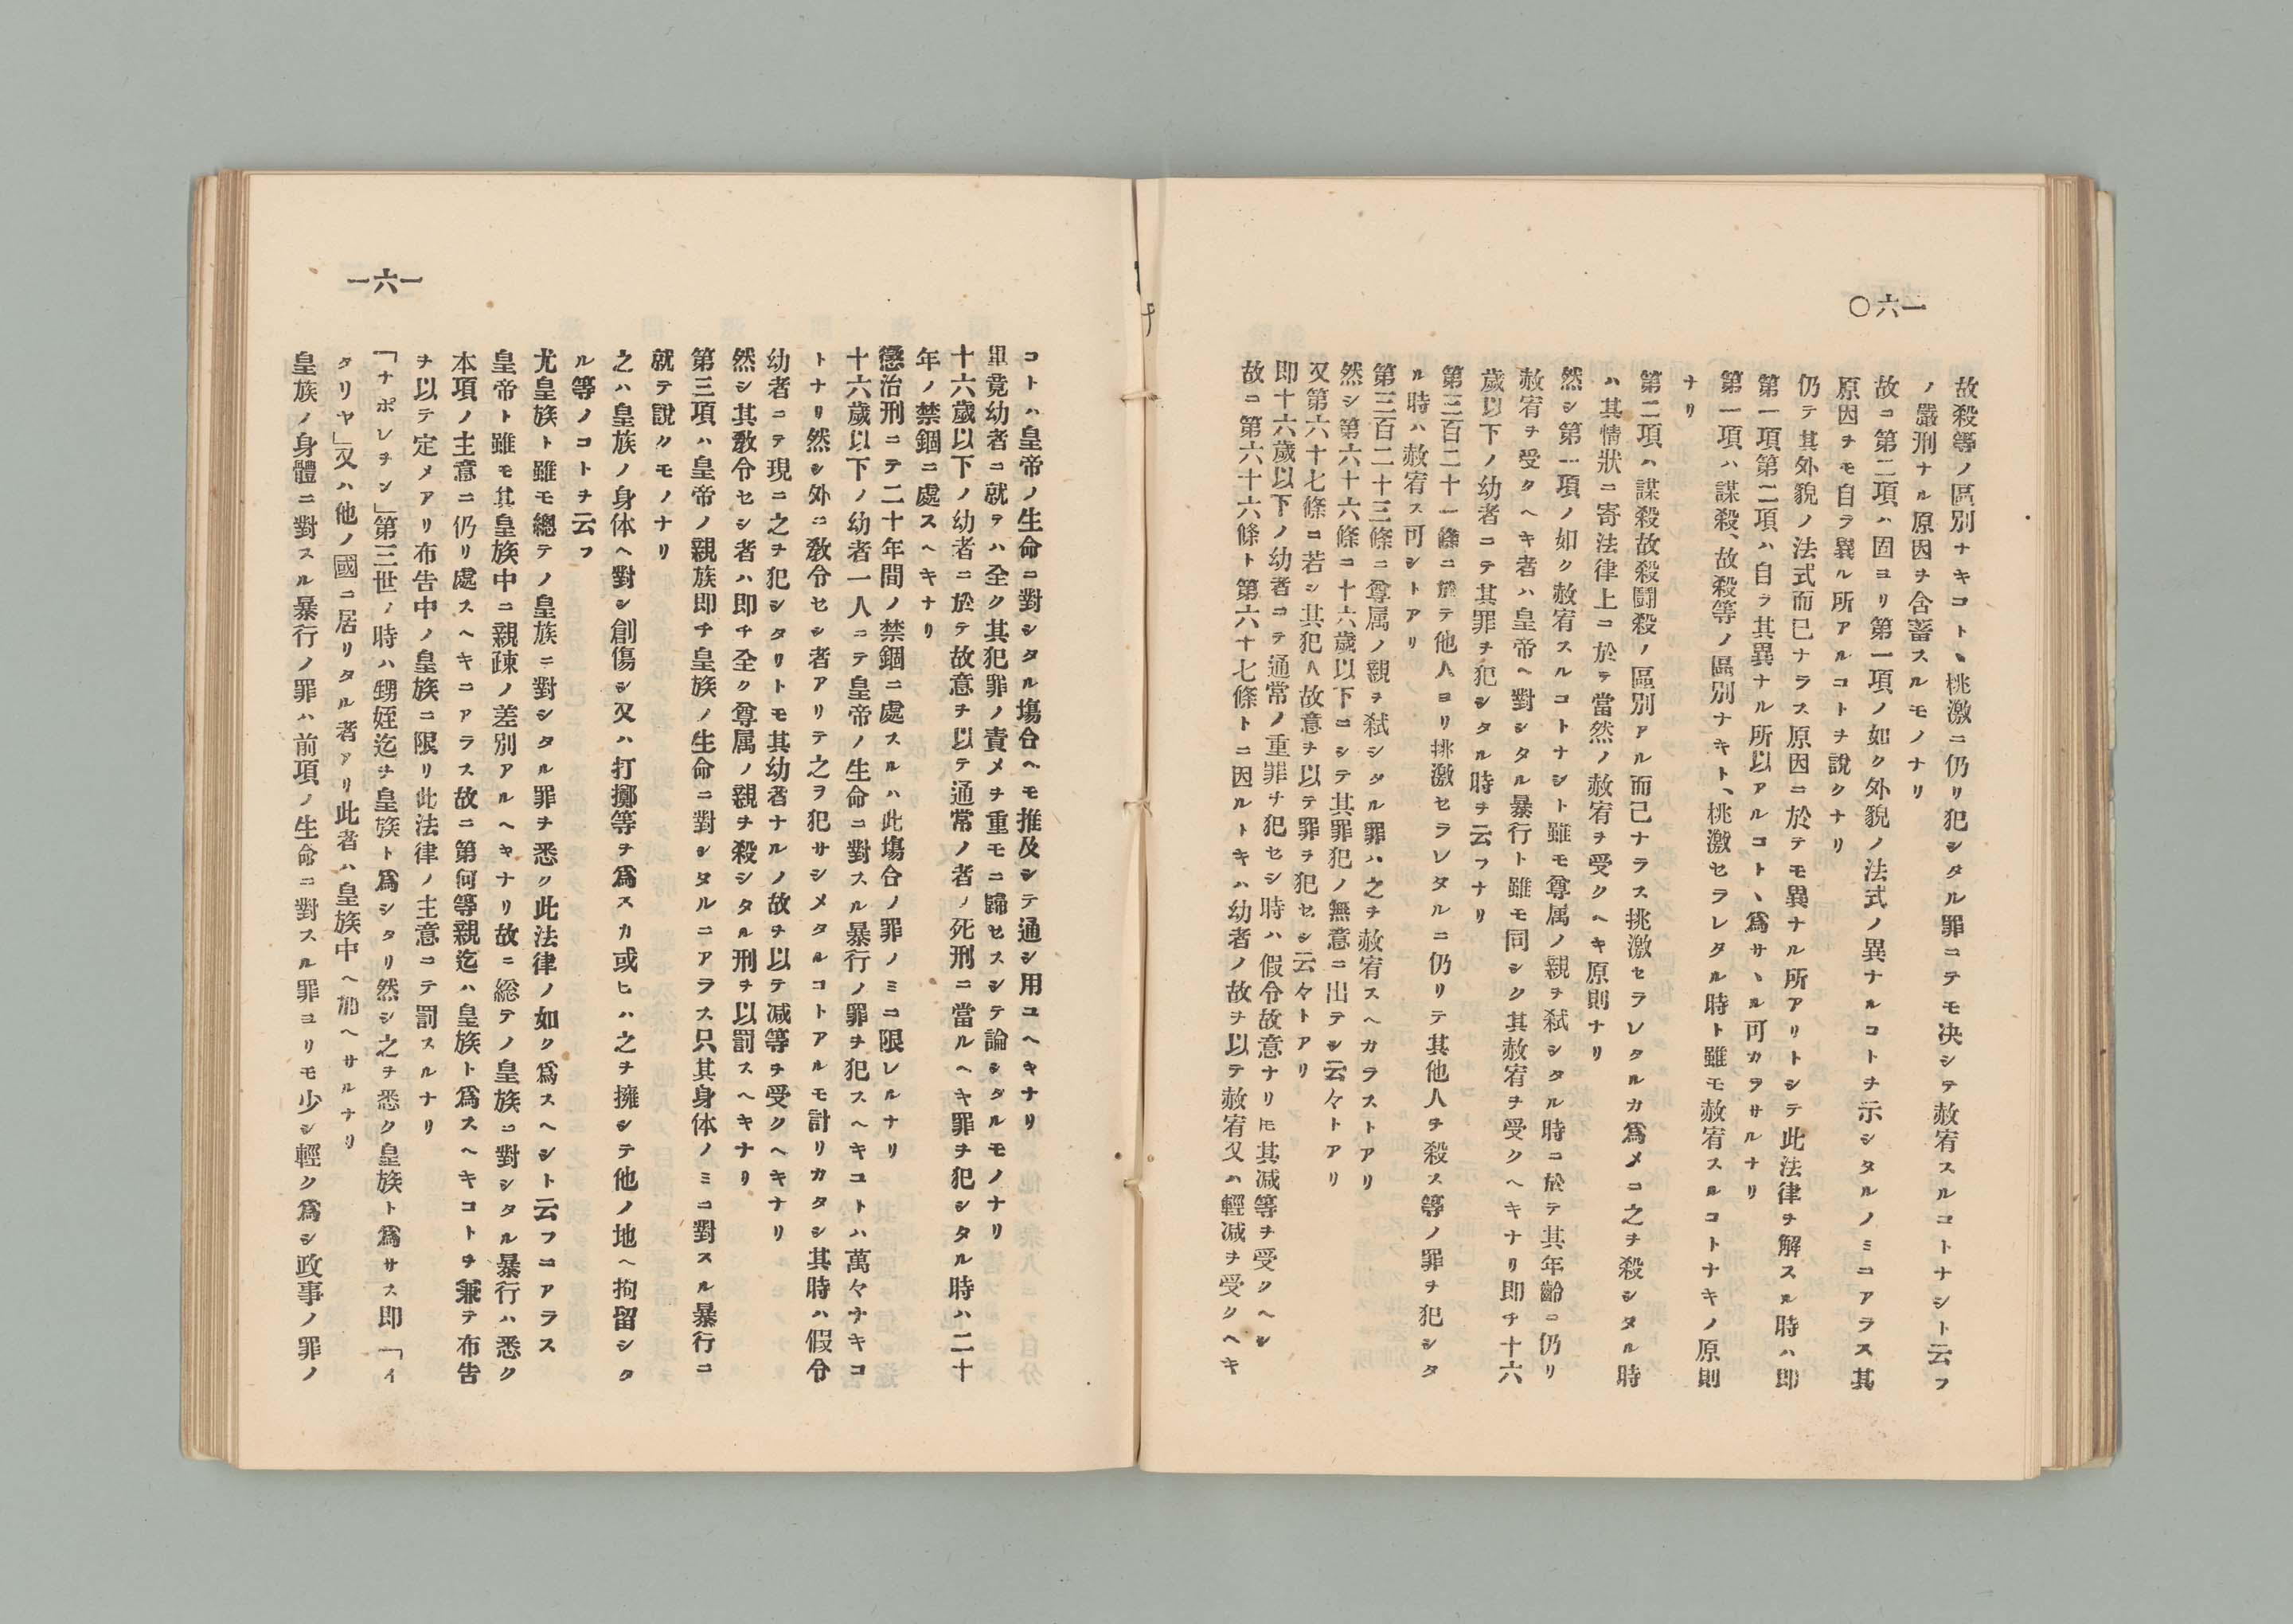 一六〇
故殺等ノ區別ナキコト、桃激ニ仍リ犯シタル罪ニテモ决シテ赦宥スルコトナシト云フ
ノ嚴刑ナル原因ヲ含蓄スルモノナリ
故ニ第二項ハ固ヨリ第一項ノ如ク外貌ノ法式ノ異ナルコトヲ示シタルノミニアラス其
原因ヲモ自ラ異ル所アルコトヲ說クナリ
仍テ其外貌ノ法式而已ナラス原因ニ於テモ異ナル所アリトシテ此法律ヲ解スル時ハ即
第一項第二項ハ自ラ其異ナル所以アルコト、爲サヽル可カラサルナリ
第一項ハ謀殺、故殺等ノ區別ナキト、桃激セラレタル時ト雖モ赦宥スルコトナキノ原則
ナリ
第二項ハ謀殺故殺鬪殺ノ區別アル而己ナラス挑激セラレタルカ爲メニ之ヲ殺シタル時
ハ其情狀ニ寄法律上ニ於テ當然ノ赦宥ヲ受クヘキ原則ナリ
然シ第一項ノ如ク赦宥スルコトナシト雖モ尊属ノ親ヲ弑シタル時ニ於テ其年齡ニ仍リ
赦宥ヲ受クヘキ者ハ皇帝ヘ對シタル暴行ト雖モ同シク其赦宥ヲ受クヘキナリ即チ十六
歲以下ノ幼者ニテ其罪ヲ犯シタル時ヲ云フナリ
第三百二十一條ニ於テ他人ヨリ挑激セラレタルニ仍リテ其他人ヲ殺ス等ノ罪ヲ犯シタ
ル時ハ赦宥ス可シトアリ
第三百二十三條ニ尊属ノ親ヲ弑シタル罪ハ之ヲ赦宥スヘカラストアリ
然シ第六十六條ニ十六歲以下ニシテ其罪犯ノ無意ニ出テシ云々トアリ
又第六十七條ニ若シ其犯人故意ヲ以テ罪ヲ犯セシ云々トアリ
即十六歲以下ノ幼者ニテ通常ノ重罪ヲ犯セシ時ハ假令故意ナリ𪜈其減等ヲ受クヘシ
故ニ第六十六條ト第六十七條トニ因ルトキハ幼者ノ故ヲ以テ赦宥又ハ輕減ヲ受クヘキ
一六一
コトハ皇帝ノ生命ニ對シタル塲合ヘモ推及シテ通シ用ユヘキナリ
畢竟幼者ニ就テハ全ク其犯罪ノ責メヲ重モニ歸セスシテ論シタルモノナリ
十六歲以下ノ幼者ニ於テ故意ヲ以テ通常ノ者ノ死刑ニ當ルヘキ罪ヲ犯シタル時ハ二十
年ノ禁錮ニ處スヘキナリ
懲治刑ニテ二十年間ノ禁錮ニ處スルハ此塲合ノ罪ノミニ限レルナリ
十六歲以下ノ幼者一人ニテ皇帝ノ生命ニ對スル暴行ノ罪ヲ犯スヘキコトハ萬々ナキコ
トナリ然シ外ニ敎令セシ者アリテ之ヲ犯サシメタルコトアルモ計リカタシ其時ハ假令
幼者ニテ現ニ之ヲ犯シタリトモ其幼者ナルノ故ヲ以テ減等ヲ受クヘキナリ
然シ其敎令セシ者ハ即チ全ク尊属ノ親ヲ殺シタル刑ヲ以罰スヘキナリ
第三項ハ皇帝ノ親族即チ皇族ノ生命ニ對シタルニアラス只其身体ノミニ對スル暴行ニ
就テ說クモノナリ
之ハ皇族ノ身体ヘ對シ創傷シ又ハ打擲等ヲ爲スカ或ヒハ之ヲ擁シテ他ノ地ヘ拘留シタ
ル等ノコトヲ云フ
尤皇族ト雖モ總テノ皇族ニ對シタル罪ヲ悉ク此法律ノ如ク爲スヘシト云フニアラス
皇帝ト雖モ其皇族中ニ親疎ノ差別アルヘキナリ故ニ総テノ皇族ニ對シタル暴行ハ悉ク
本項ノ主意ニ仍リ處スヘキニアラス故ニ第何等親迄ハ皇族ト爲スヘキコトヲ兼テ布告
ヲ以テ定メアリ布告中ノ皇族ニ限リ此法律ノ主意ニテ罰スルナリ
「ナポレヲン」第三世ノ時ハ甥姪迄ヲ皇族ト爲シタリ然シ之ヲ悉ク皇族ト爲サス即「イ
タリヤ」又ハ他ノ國ニ居リタル者アリ此者ハ皇族中ヘ加ヘサルナリ
皇族ノ身體ニ對スル暴行ノ罪ハ前項ノ生命ニ對スル罪ヨリモ少シ輕ク爲シ政事ノ罪ノ